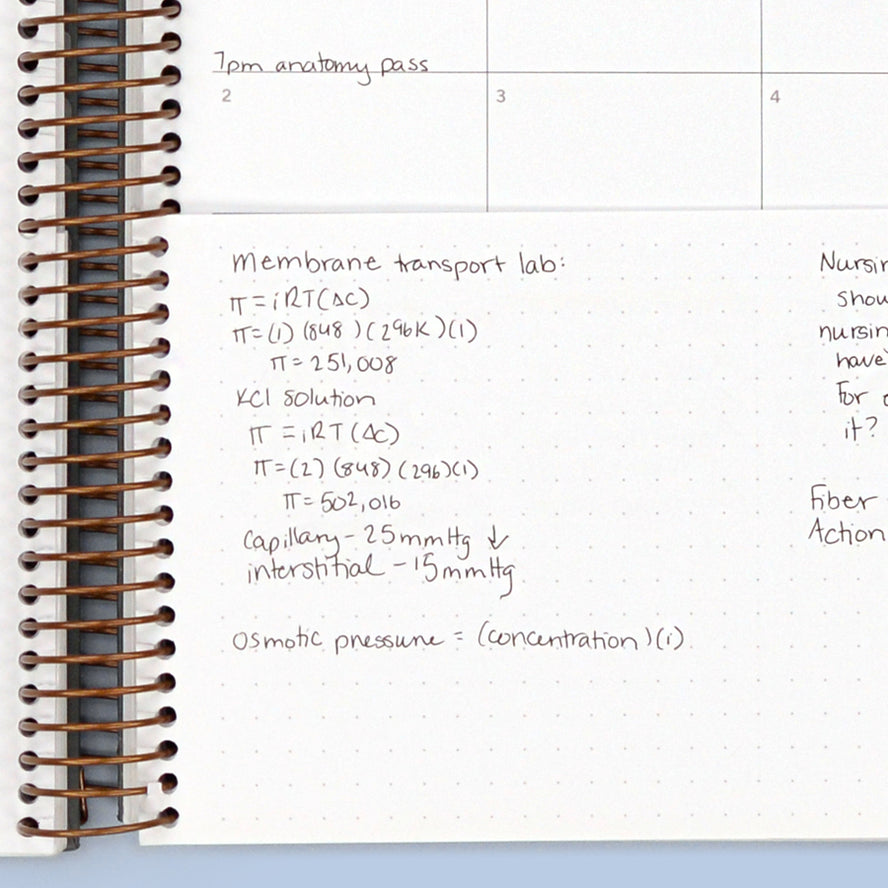 7pm anatomy pass
2
3
4
Membrane transport lab:
π = iRT(ΔC)
π = (1) (848) (296K)(1)
π = 251,008
KCl solution
π = iRT (ΔC)
π = (2) (848) (296)(1)
π = 502,016
Capillary - 25mmHg ↓
interstitial - 15mmHg
Osmotic pressure = (concentration)(i)
Nursin
shou
nursin
have
For
it?
Fiber
Action